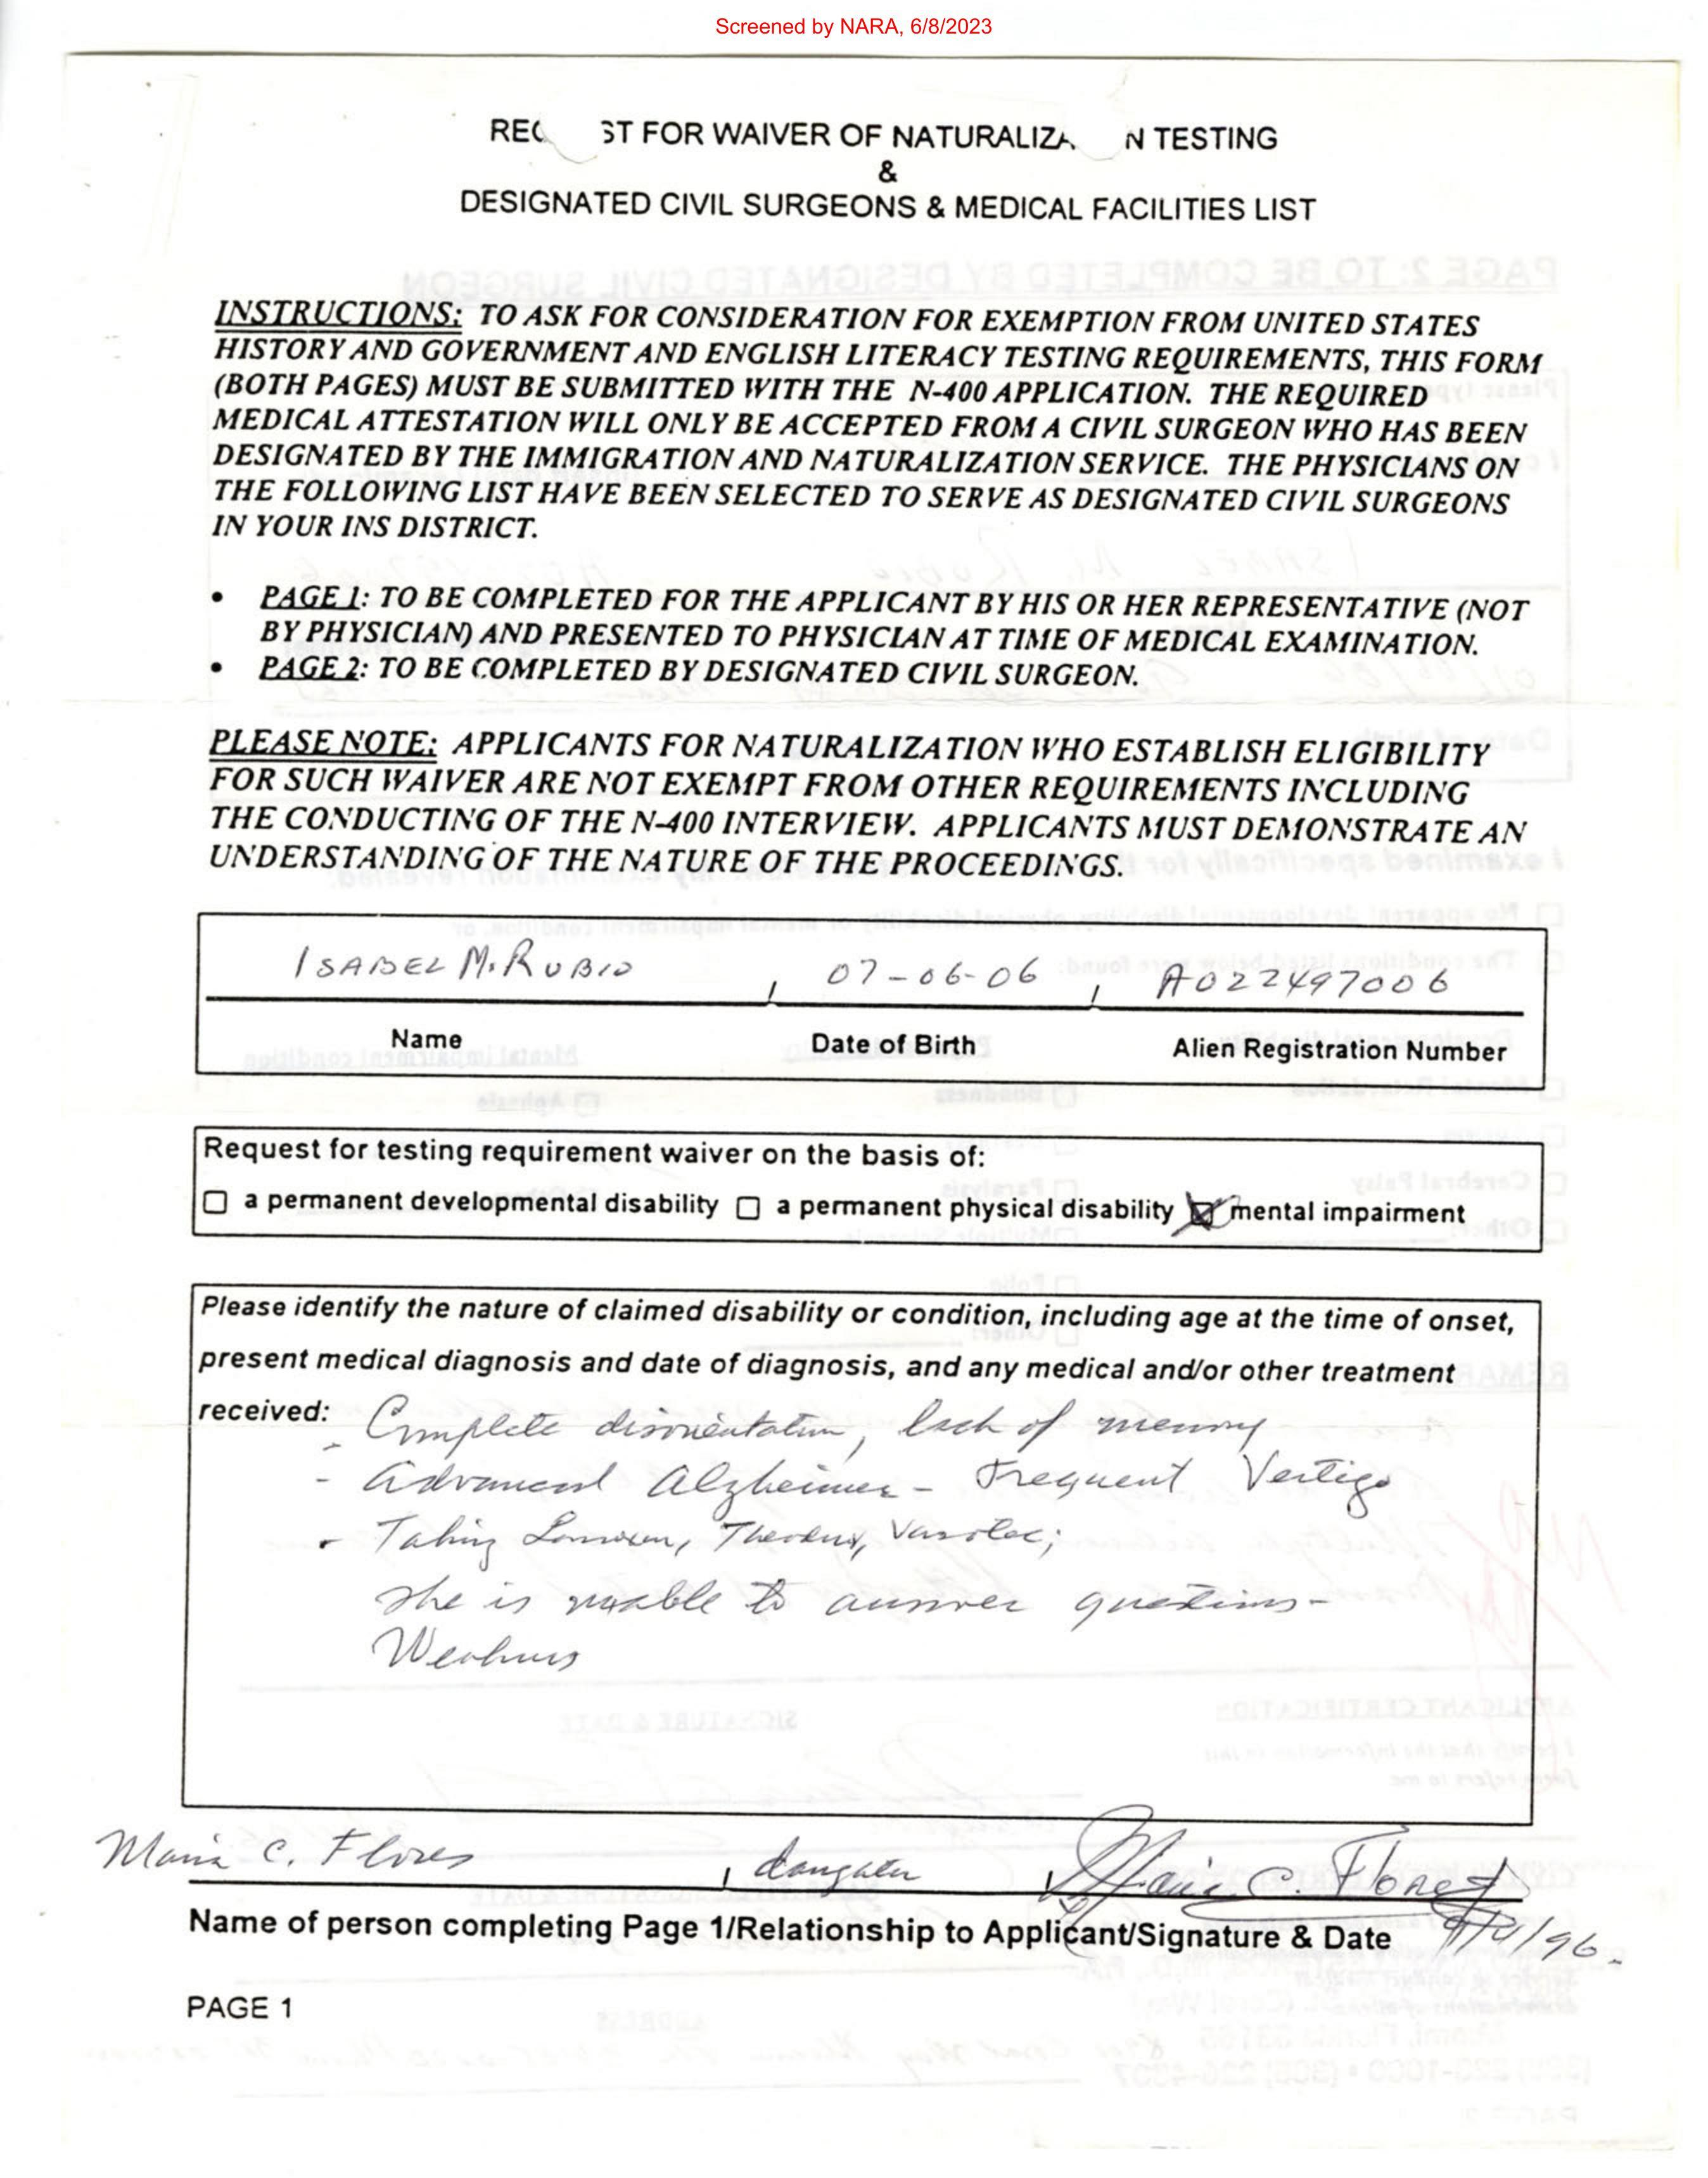 Screened by NARA, 6/8/2023
REQ ST FOR WAIVER OF NATURALIZA N TESTING
&
DESIGNATED CIVIL SURGEONS & MEDICAL FACILITIES LIST
INSTRUCTIONS: TO ASK FOR CONSIDERATION FOR EXEMPTION FROM UNITED STATES
HISTORY AND GOVERNMENT AND ENGLISH LITERACY TESTING REQUIREMENTS, THIS FORM
(BOTH PAGES) MUST BE SUBMITTED WITH THE N-400 APPLICATION. THE REQUIRED
MEDICAL ATTESTATION WILL ONLY BE ACCEPTED FROM A CIVIL SURGEON WHO HAS BEEN
DESIGNATED BY THE IMMIGRATION AND NATURALIZATION SERVICE. THE PHYSICIANS ON
THE FOLLOWING LIST HAVE BEEN SELECTED TO SERVE AS DESIGNATED CIVIL SURGEONS
IN YOUR INS DISTRICT.
• PAGE 1: TO BE COMPLETED FOR THE APPLICANT BY HIS OR HER REPRESENTATIVE (NOT
BY PHYSICIAN) AND PRESENTED TO PHYSICIAN AT TIME OF MEDICAL EXAMINATION.
• PAGE 2: TO BE COMPLETED BY DESIGNATED CIVIL SURGEON.
PLEASE NOTE: APPLICANTS FOR NATURALIZATION WHO ESTABLISH ELIGIBILITY
FOR SUCH WAIVER ARE NOT EXEMPT FROM OTHER REQUIREMENTS INCLUDING
THE CONDUCTING OF THE N-400 INTERVIEW. APPLICANTS MUST DEMONSTRATE AN
UNDERSTANDING OF THE NATURE OF THE PROCEEDINGS.
ISABEL M. RUBIO , 07-06-06 , A022497006
Name Date of Birth Alien Registration Number
Request for testing requirement waiver on the basis of:
☐ a permanent developmental disability ☐ a permanent physical disability ☒ mental impairment
Please identify the nature of claimed disability or condition, including age at the time of onset,
present medical diagnosis and date of diagnosis, and any medical and/or other treatment
received:
- Complete disorientation, lack of memory
- Advanced Alzheimer - Frequent Vertigo
- Taking Vasotec;
she is unable to answer questions -
Weakness
Maria C. Flores , daughter , Maria C. Flores
Name of person completing Page 1/Relationship to Applicant/Signature & Date
PAGE 1